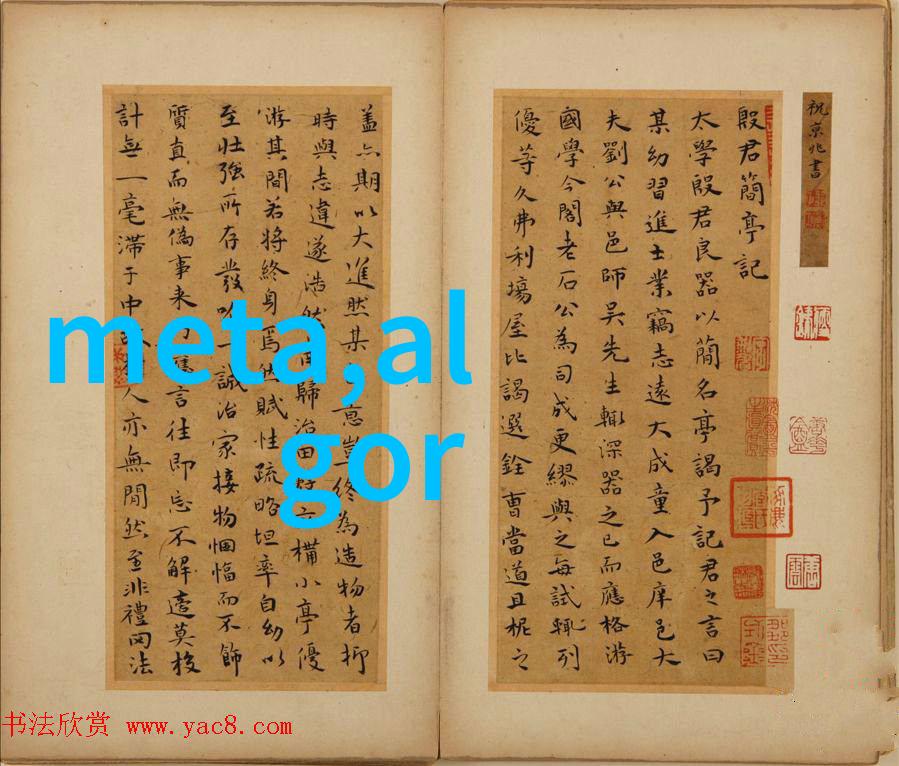 祝京兆書
殷君簡亭記
太學殷君民器以簡名亭謁予記君之言曰
某幼習進士業竊志遠大成童入邑庠邑大
夫劉公與邑師吳先生輙深器之已而應格游
國學今閣老石公為司成更繆與之每試輙列
優等久弗利場屋比謁選銓曹當道且柅之
蓋亦期以大進然某意豈終為造物者抑
時與志違遂浩然歸治田構小亭優
游其間若將終身焉然賦性疏略坦率自幼以
至壯強所存發以一誠治家接物悃愊而不飾
質真而無偽事来言往即忘不解莫校
計無一毫滯于中人亦無間然至非禮罔法
meta,al
gor
书法欣赏 www.yac8.com